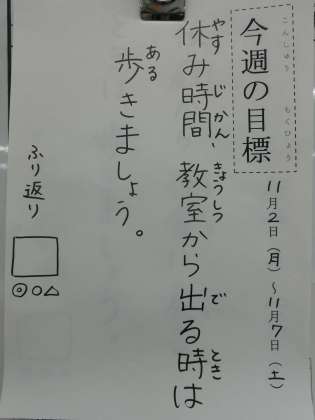 今週の目標
こんしゅう もくひょう
11月2日(月)～11月7日(土)
休み時間、教室から出る時は
やす じかん きょうしつ で とき
歩きましょう。
ある
ふり返り
◎○△